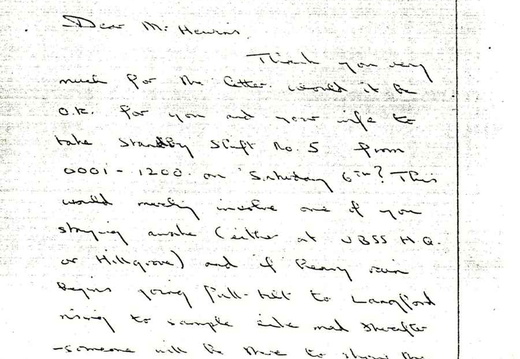 Dear Mr Hewins.
Thank you very
much for the letter. would it be
O.K. for you and your wife to
take standby shift No. 5 from
0001 - 1200. on Saturday 6th? This
would merely involve one of you
staying awake (either at UBSS HQ.
or Hillgrove) and if heavy rain
begins going full-tilt to Langford
rising to sample sink and thereafter
- someone will be there to show the